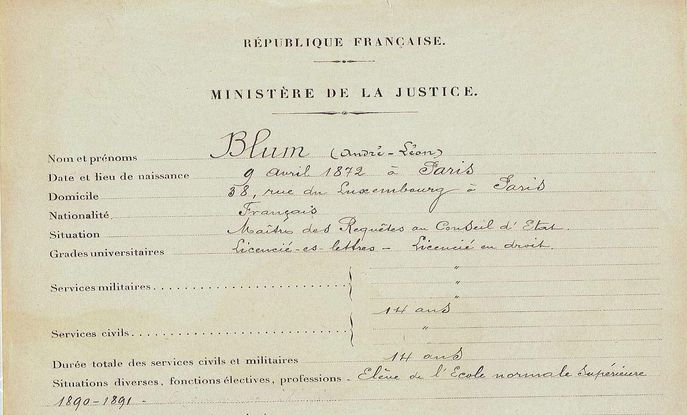 RÉPUBLIQUE FRANÇAISE.
MINISTÈRE DE LA JUSTICE.
Nom et prénoms Blum (André-Léon)
Date et lieu de naissance 9 avril 1872 à Paris
Domicile 38, rue du Luxembourg à Paris
Nationalité Français
Situation Maître des Requêtes au Conseil d'Etat.
Grades universitaires Licencié-es-lettres - Licencié en droit.
"
Services militaires "
"
14 ans
Services civils "
Durée totale des services civils et militaires 14 ans
Situations diverses, fonctions électives, professions - Elève de l'Ecole normale Supérieure
1890-1891 -